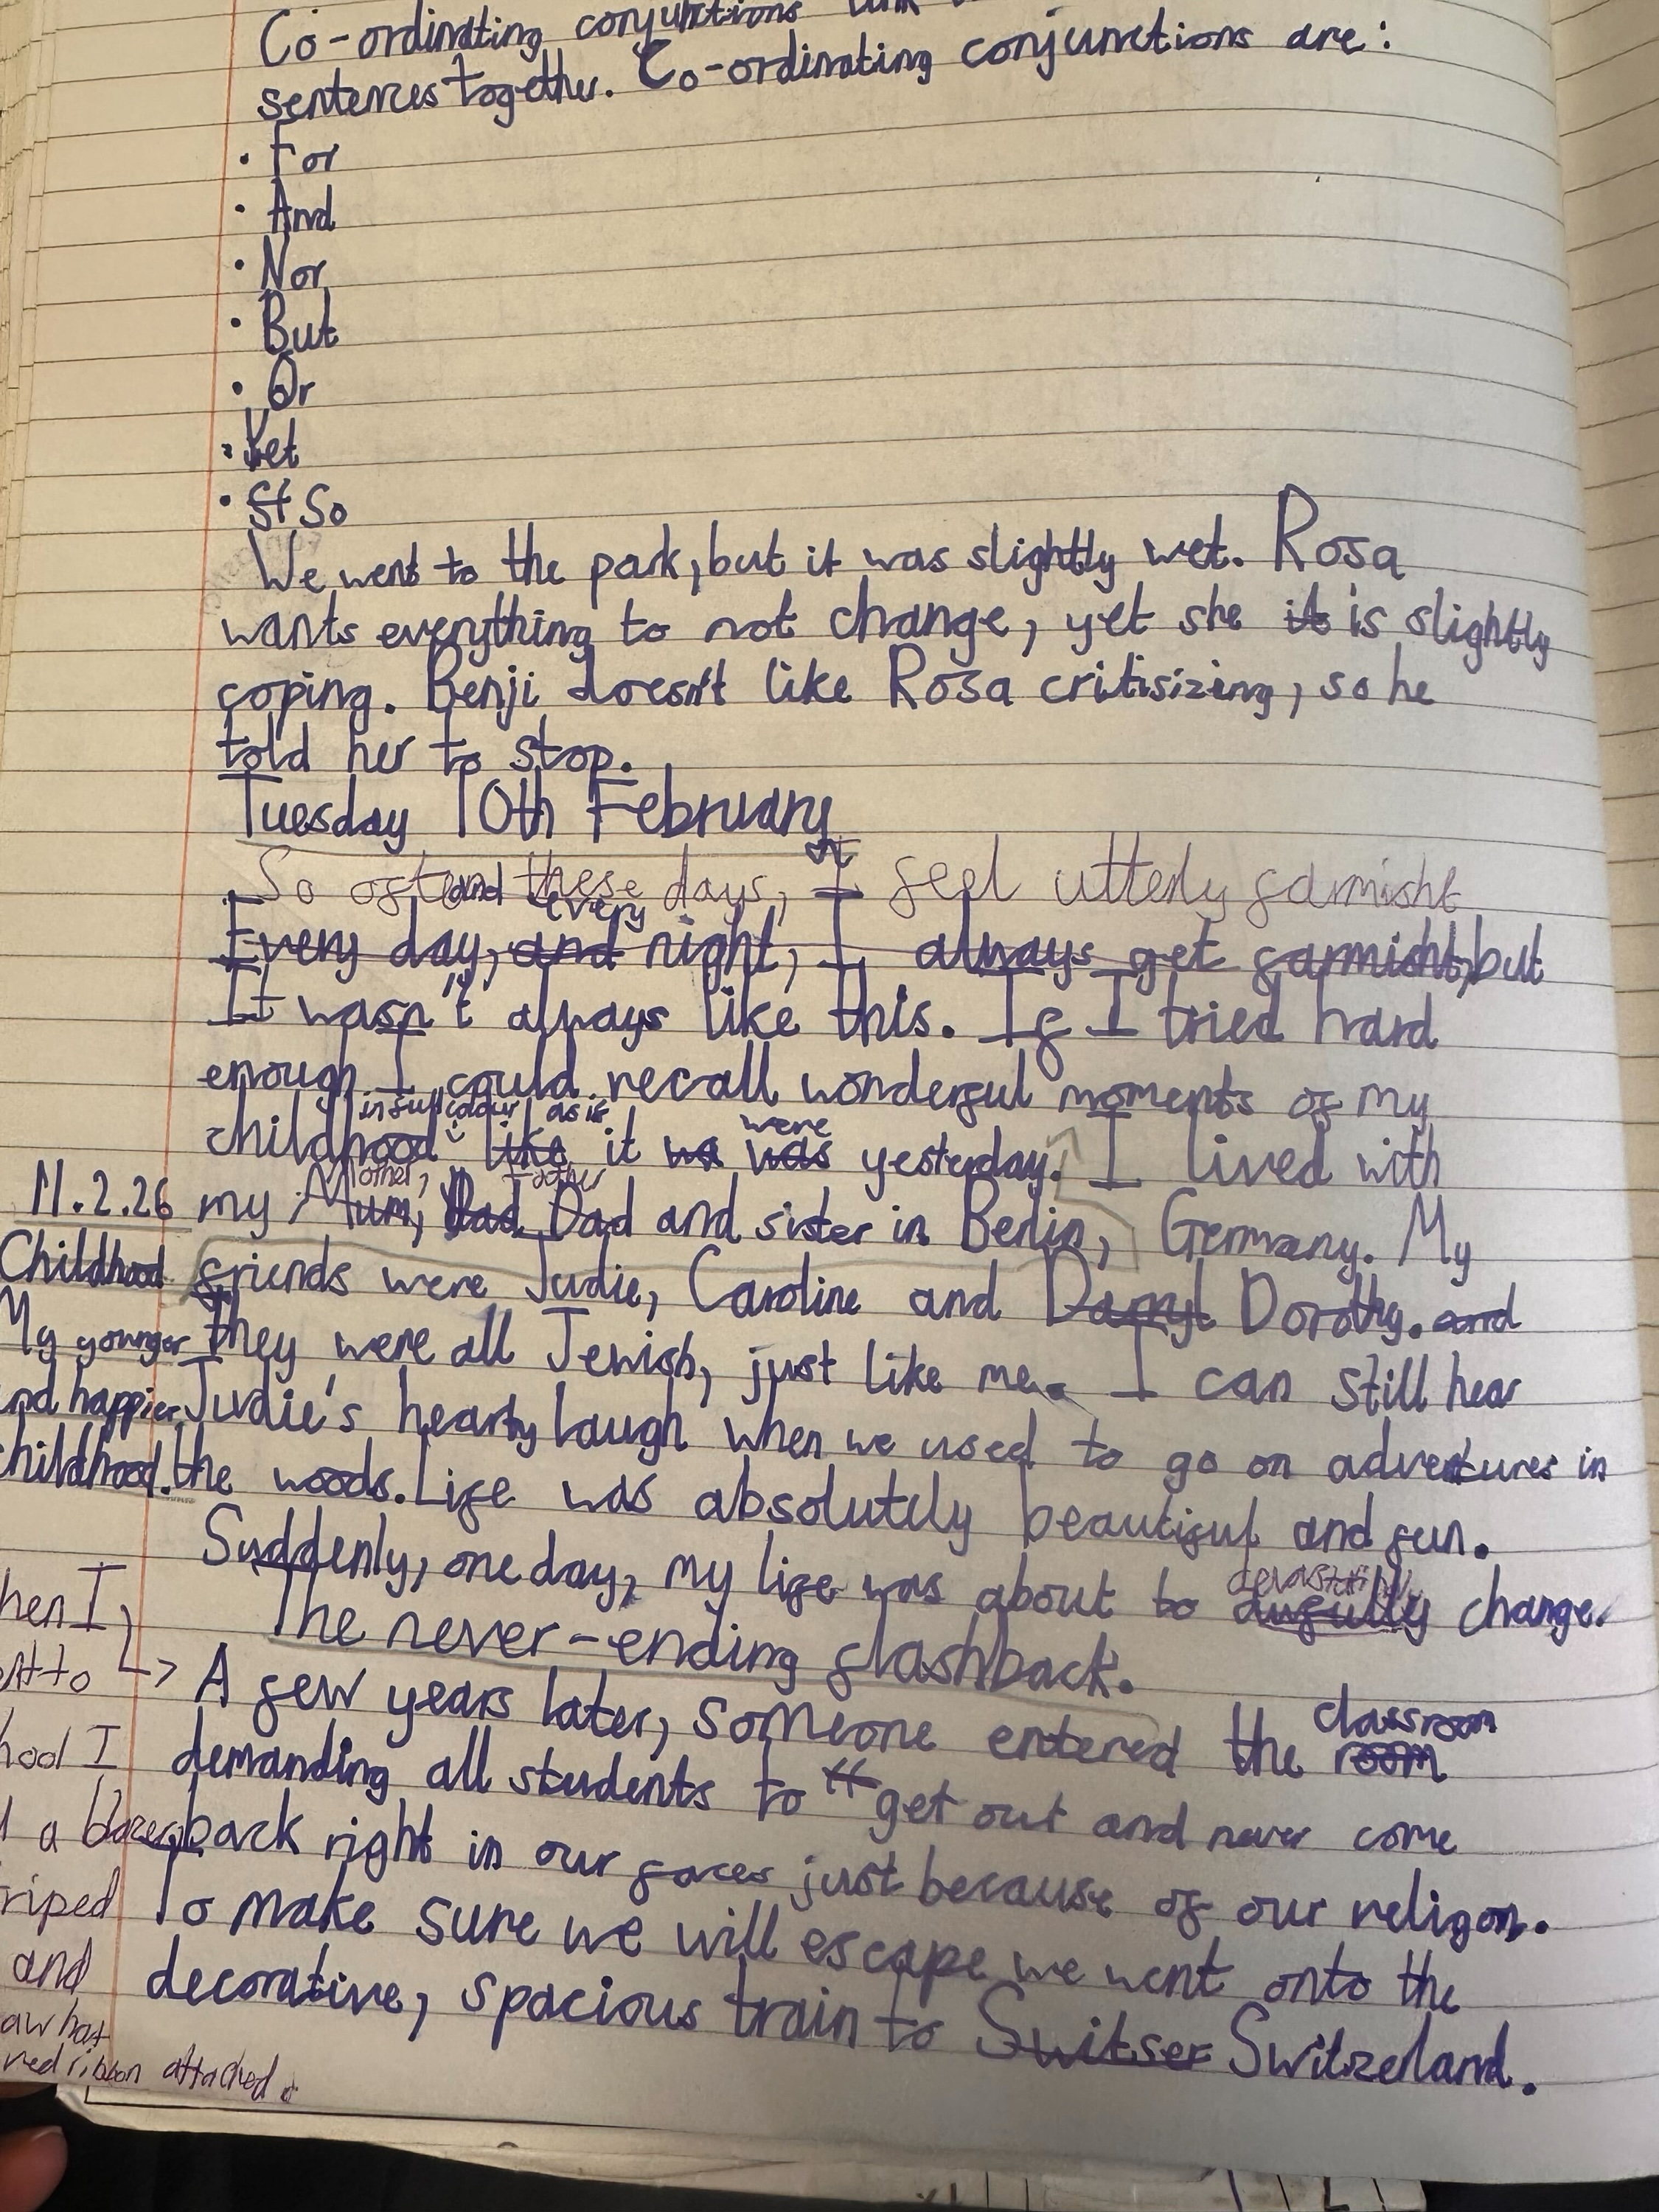 Co-ordinating conjunctions link
sentences together. Co-ordinating conjunctions are:
• For
• And
• Nor
• But
• Or
• Yet
• St So
We went to the park, but it was slightly wet. Rosa
wants everything to not change, yet she it is slightly
coping. Benji doesn't like Rosa critisizing, so he
told her to stop.
Tuesday 10th February
So often these days, I feel utterly farmisht
and every
Every day, and night, I always get farmisht, but
It wasn't always like this. If I tried hard
enough I could recall wonderful moments of my
in full colour as if were
childhood like it wa was yesterday. I lived with
Mother, Father
11.2.26
my Mum, Dad Dad and sister in Berlin, Germany. My
Childhood
friends were Judie, Caroline and Darryl Dorothy. and
My younger
they were all Jewish, just like me. I can still hear
and happier
Judie's hearty laugh when we used to go on adventures in
childhood.
the woods. Life was absolutely beautiful and fun.
Suddenly, one day, my life was about to awfully change.
hen I
The never-ending flashback.
nt to
A few years later, someone entered the room
classroom
hool I
demanding all students to " get out and never come
a blazer,
back right in our faces just because of our religon.
riped
To make sure we will escape we went onto the
and
decorative, spacious train to Switser Switzerland.
aw hat
red ribbon attached.